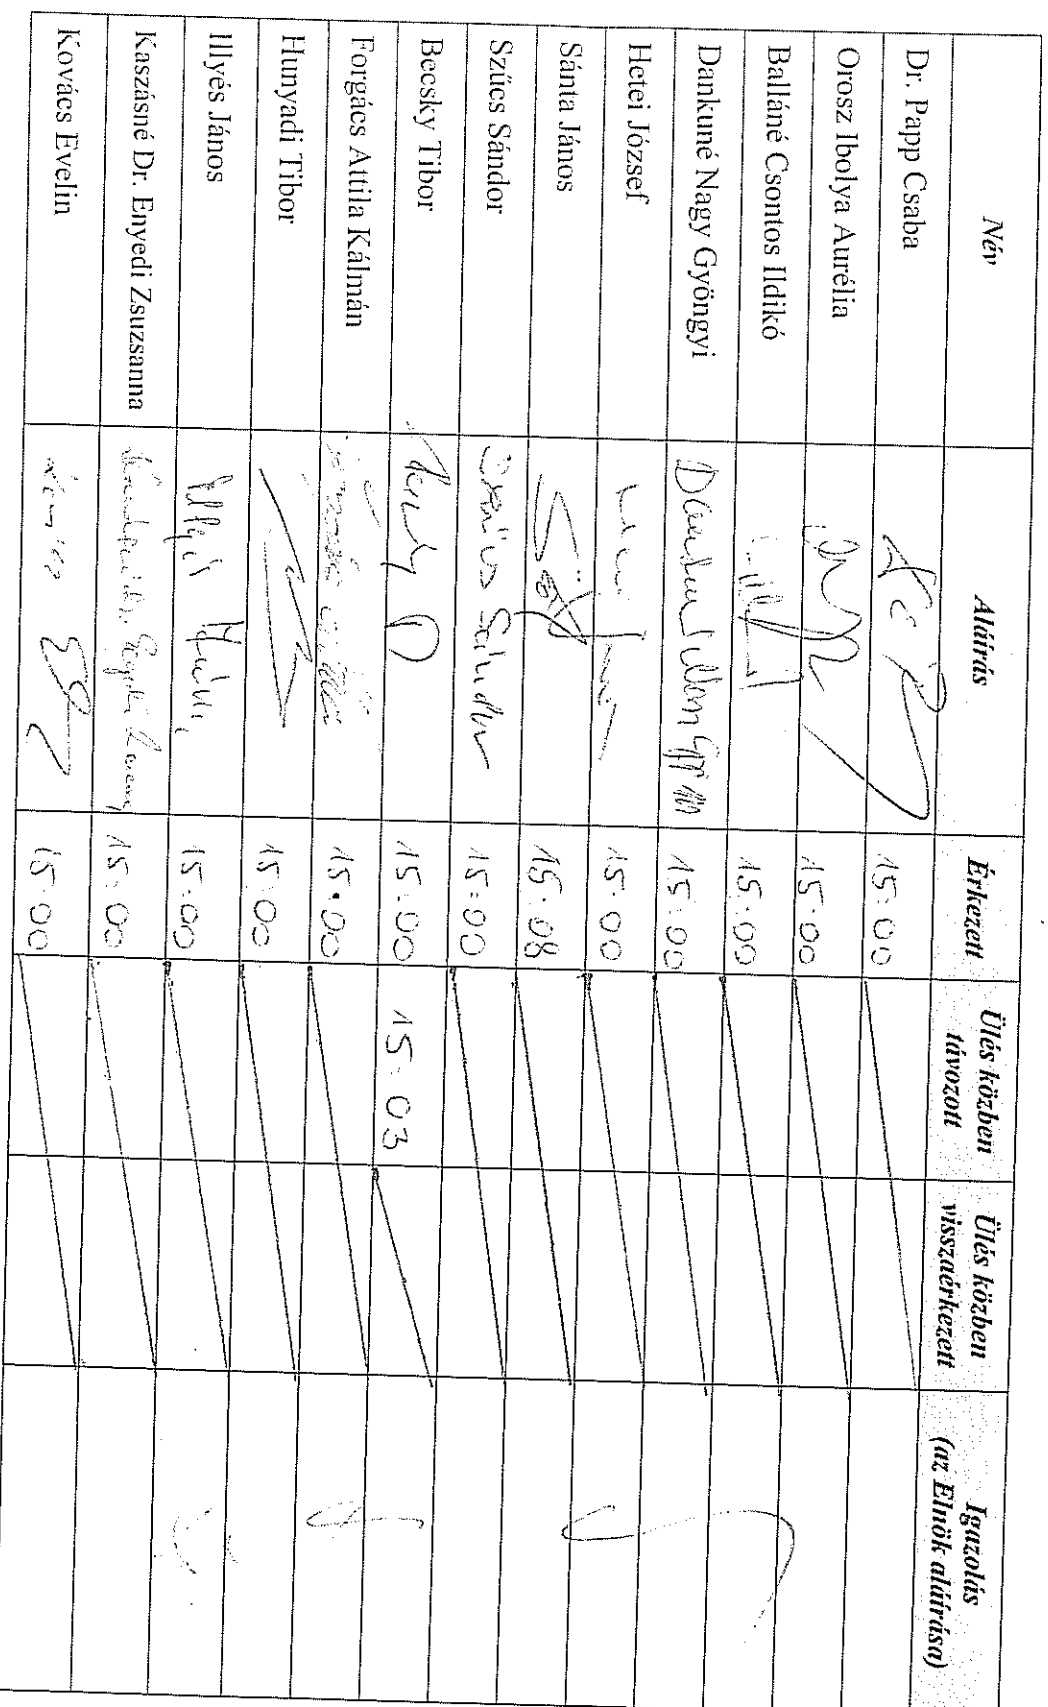 Név Aláírás Érkezett Ülés közben távozott Ülés közben visszaérkezett Igazolás (az Elnök aláírása)
Dr. Papp Csaba 15:00
Orosz Ibolya Aurélia 15:00
Balláné Csontos Ildikó 15:00
Dankuné Nagy Gyöngyi 15:00
Hetei József 15:00
Sánta János 15:08
Szűcs Sándor Szűcs Sándor 15:00
Becsky Tibor 15:00 15:03
Forgács Attila Kálmán 15:00
Hunyadi Tibor 15:00
Illyés János Illyés János 15:00
Kaszásné Dr. Enyedi Zsuzsanna 15:00
Kovács Evelin 15:00